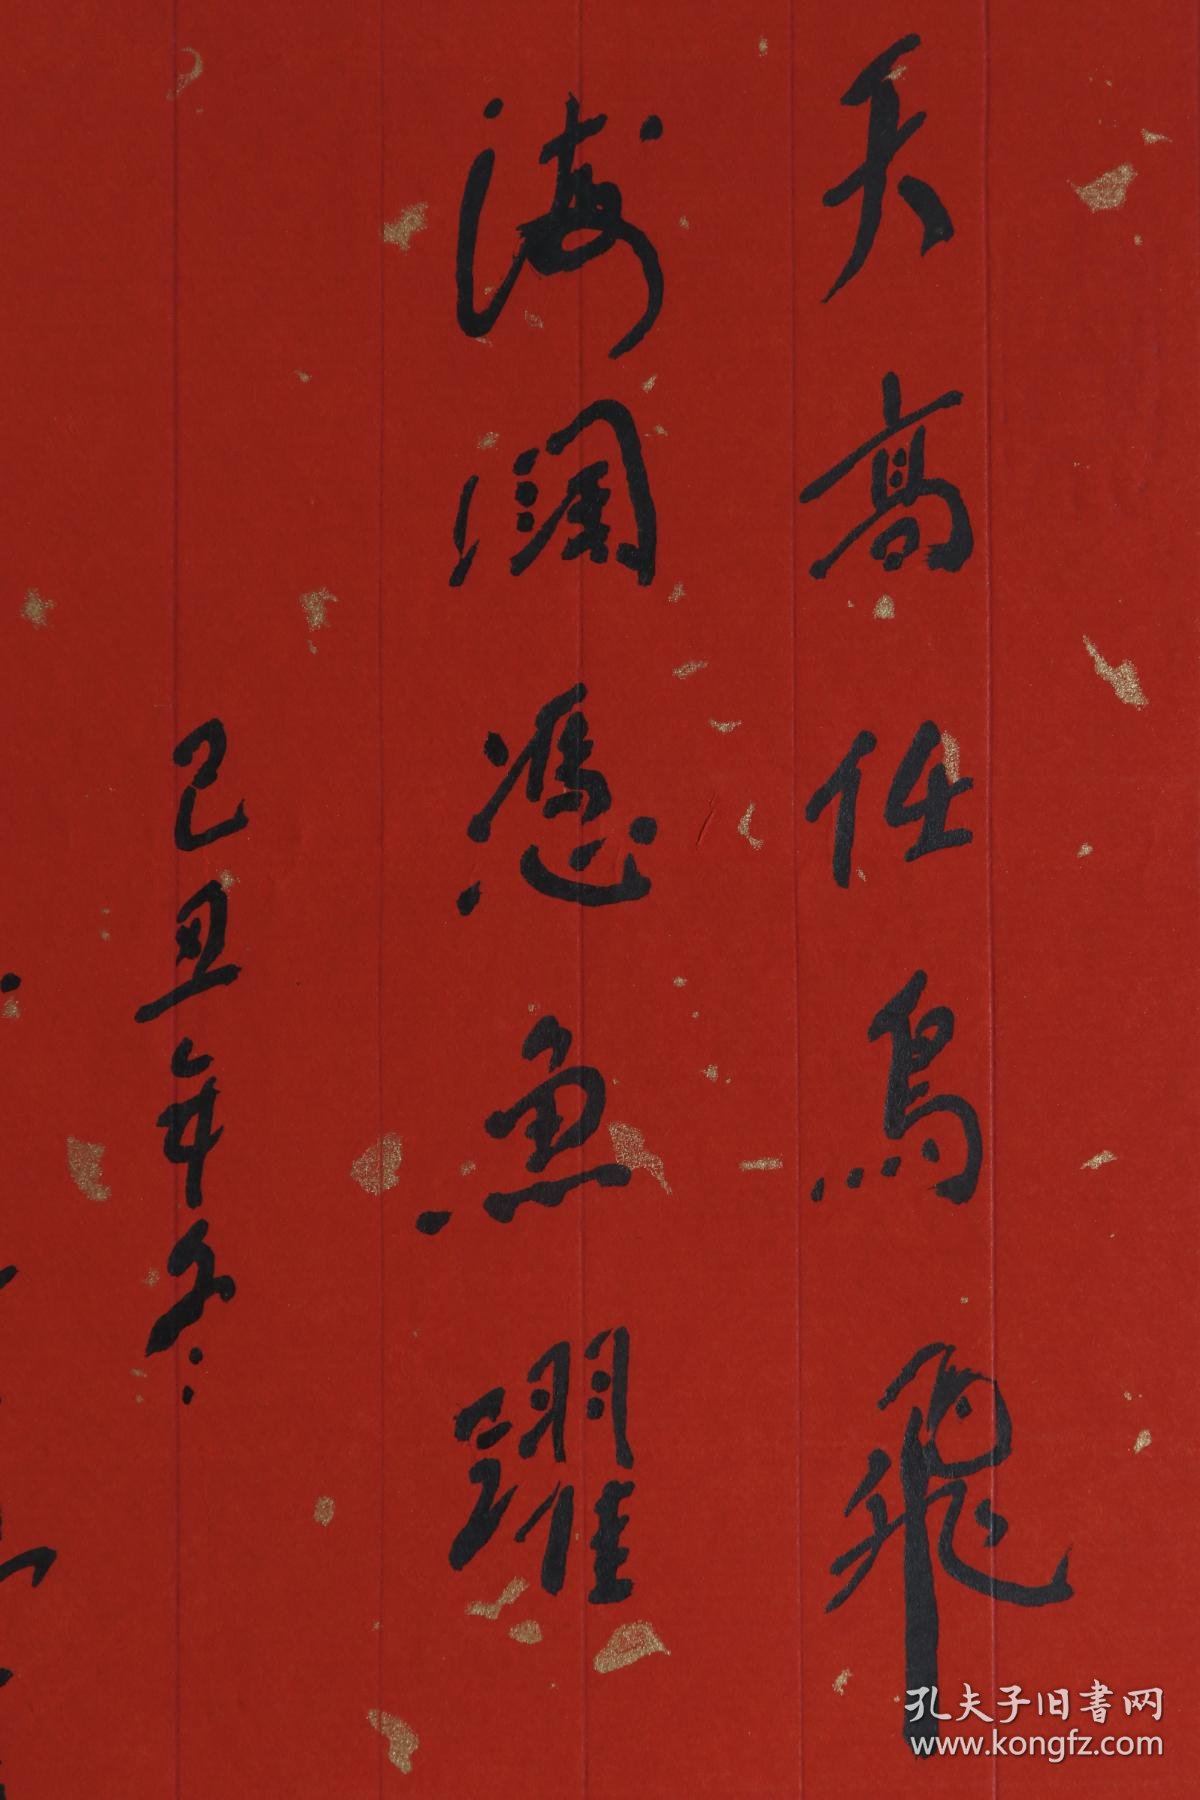 天高任鳥飛
海闊憑魚躍
己丑年冬
孔夫子旧書网
www.kongfz.com